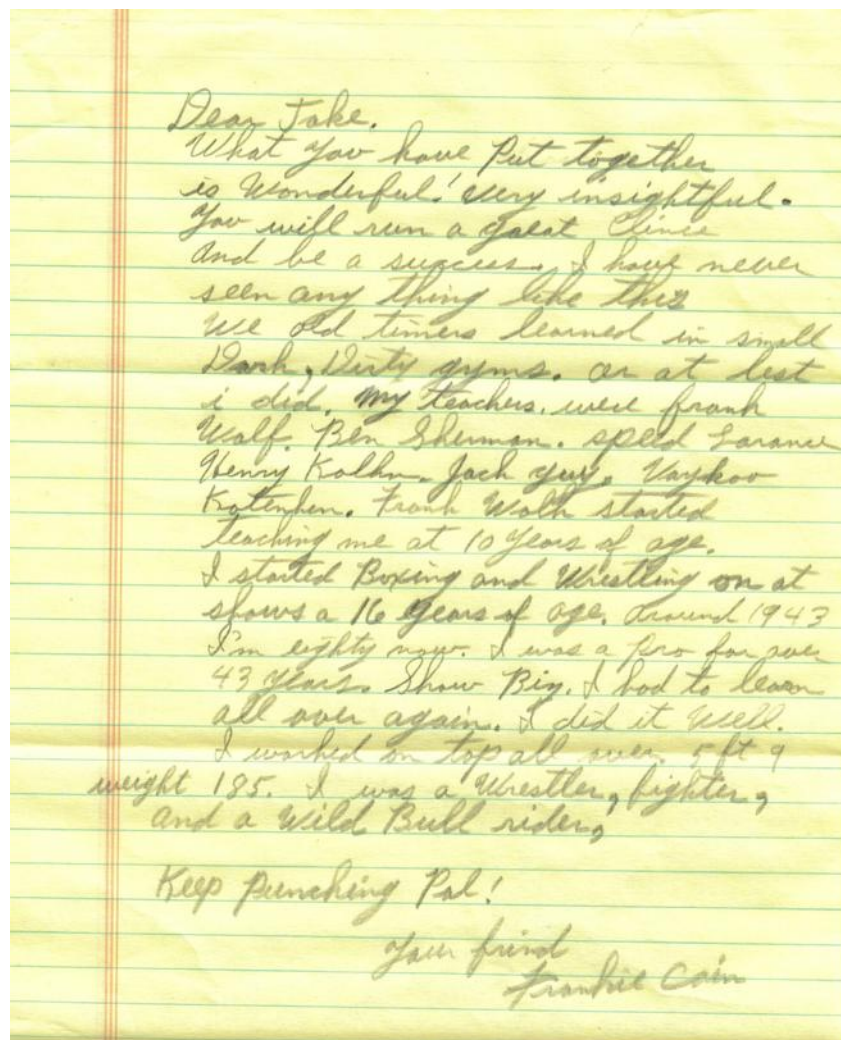 Dear Jake.
What you have Put together
is Wonderful! very insightful.
You will run a great Clinic
And be a success. I have never
seen any thing like this
We old timers learned in small
Dark, Dirty gyms. or at lest
i did. My teachers. were frank
Wolf. Ben Sherman. speed
Henry Kolhn. Jack
Frank Wolk started
teaching me at 10 years of age.
I started Boxing and Wrestling on at
shows a 16 years of age. around 1943
I'm eighty now. I was a Pro for over
43 years. Show Biz. I had to learn
all over again. I did it Well.
I worked on top all over. 5 ft 9
weight 185. I was a Wrestler, fighter,
and a Wild Bull rider,
Keep Punching Pal!
Your frind
Frankie Cain